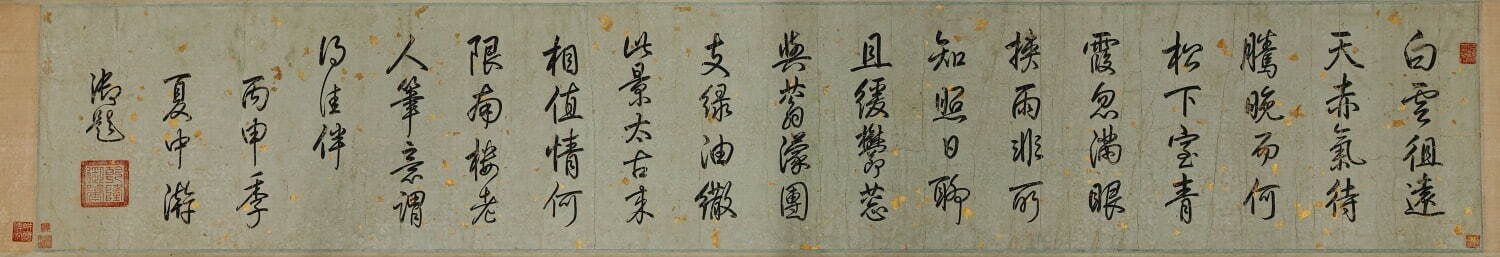 白雲徂遠
天赤氣待
騰晚而何
松下室青
霞忽滿眼
挾雨非所
知照日聊
且緩鬱蔥
與蓊濛團
支綠油繖
此景太古来
相值情何
限南樓老
人筆意謂
得佳伴
丙申季
夏中澣
御題